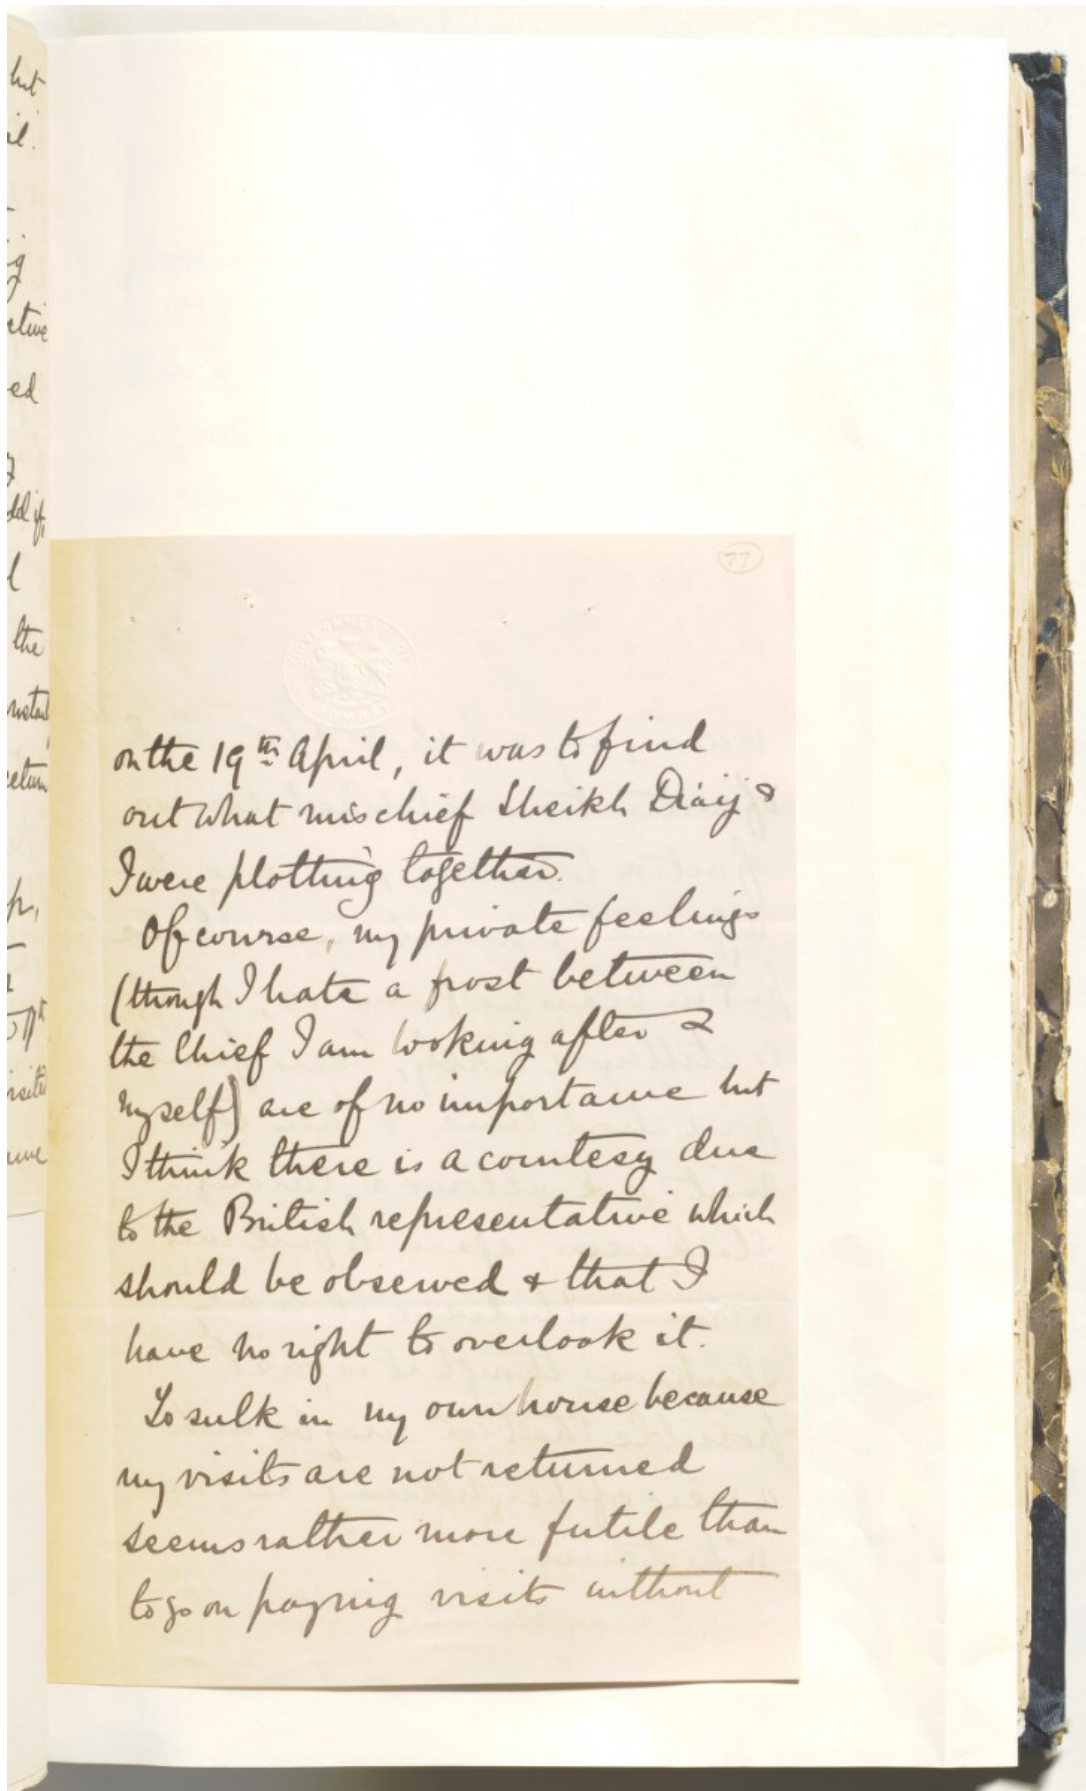 but
il.
g
ctive
ed
the
nstan
eturn
77
GOVERNMENT OF
on the 19th April, it was to find
out what mischief Sheikh Diaij &
I were plotting together.
Of course, my private feelings
(though I hate a frost between
the Chief I am looking after &
myself) are of no importance but
I think there is a courtesy due
to the British representative which
should be observed & that I
have no right to overlook it.
To sulk in my own house because
my visits are not returned
seems rather more futile than
to go on paying visits without